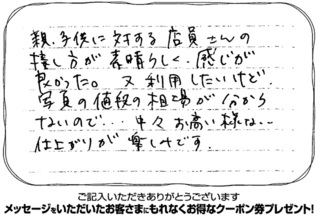 親、子供に対する店員さんの
接し方が素晴らしく、感じが
良かった。又利用したいけど、
写真の値段の相場が分から
ないので… 中々お高い様な…
仕上がりが楽しみです。
ご記入いただきありがとうございます
メッセージをいただいたお客さまにもれなくお得なクーポン券プレゼント!